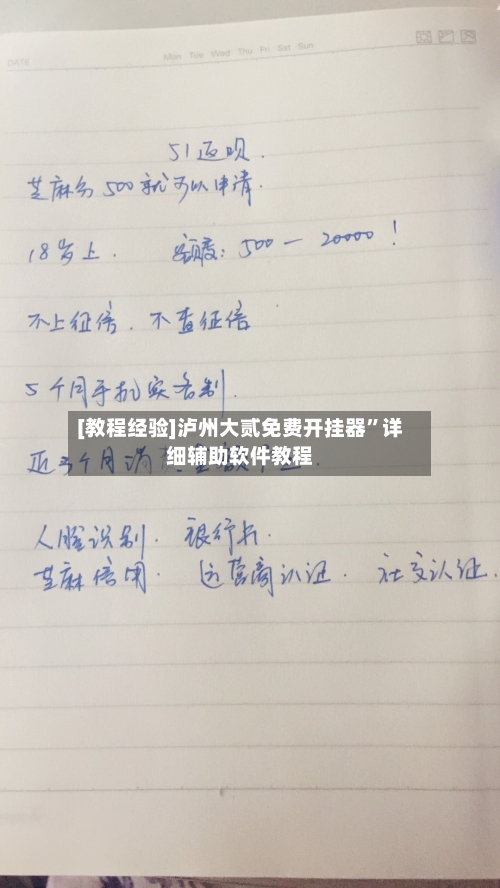 DATE
Mon Tue Wed Thu Fri Sat Sun
51返呗.
芝麻分500就可以申请.
18岁上. 额度: 500一20000!
不上征信. 不查征信
5个月手机实名制.
[教程经验]泸州大贰免费开挂器”详
细辅助软件教程
近3个月消
人脸识别. 银行卡.
芝麻信用. 运营商认证. 社交认证.